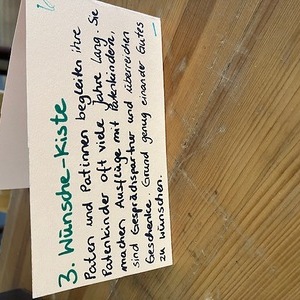 3. Wünsche-Kiste
Paten und Patinnen begleiten ihre
Patenkinder oft viele Jahre lang. Sie
machen Ausflüge mit Patenkindern,
sind Gesprächspartner und überreichen
Geschenke. Grund genug einander Gutes
zu wünschen.